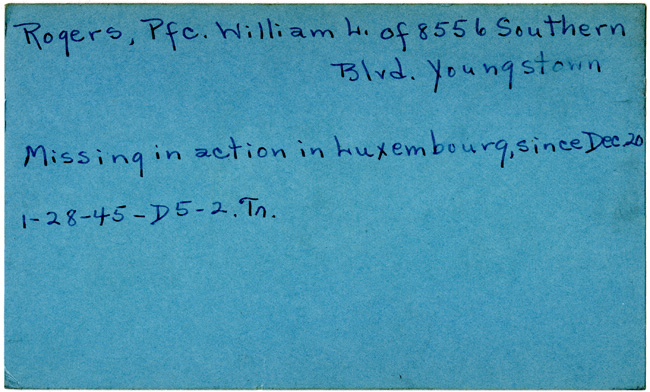 Rogers, Pfc. William L. of 8556 Southern
Blvd. Youngstown
Missing in action in Luxembourg, since Dec. 20
1-28-45-D5-2. Tn.